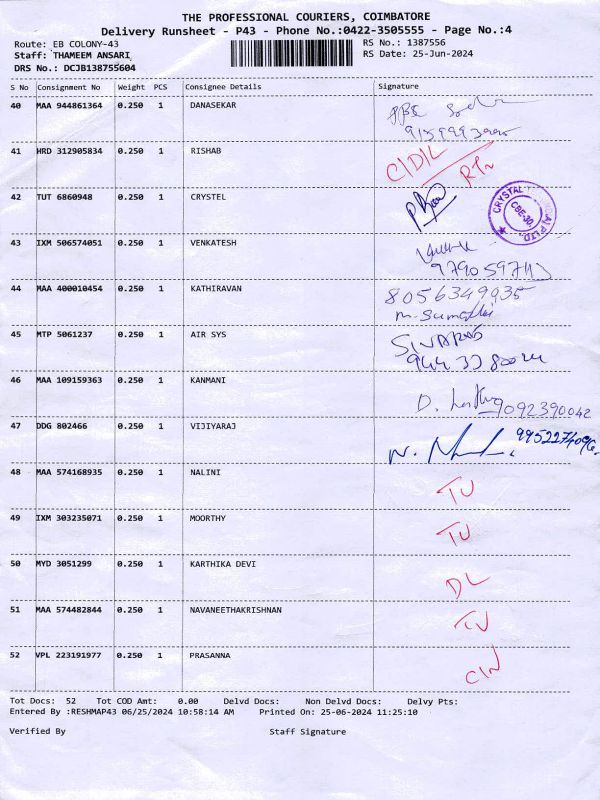 THE PROFESSIONAL COURIERS, COIMBATORE
Delivery Runsheet - P43 - Phone No.:0422-3505555 - Page No.:4
Route: EB COLONY-43 RS No.: 1387556
Staff: THAMEEM ANSARI RS Date: 25-Jun-2024
DRS No.: DCJB138755604
S No Consignment No Weight PCS Consignee Details Signature
40 MAA 944861364 0.250 1 DANASEKAR
41 HRD 312905834 0.250 1 RISHAB
RTN
42 TUT 6860948 0.250 1 CRYSTEL
43 IXM 506574051 0.250 1 VENKATESH
44 MAA 400010454 0.250 1 KATHIRAVAN 8056349935
45 MTP 5061237 0.250 1 AIR SYS
46 MAA 109159363 0.250 1 KANMANI 9092390042
47 DDG 802466 0.250 1 VIJIYARAJ
48 MAA 574168935 0.250 1 NALINI
49 IXM 303235071 0.250 1 MOORTHY
50 MYD 3051299 0.250 1 KARTHIKA DEVI DL
51 MAA 574482844 0.250 1 NAVANEETHAKRISHNAN
52 VPL 223191977 0.250 1 PRASANNA
Tot Docs: 52 Tot COD Amt: 0.00 Delvd Docs: Non Delvd Docs: Delvy Pts:
Entered By :RESHMAP43 06/25/2024 10:58:14 AM Printed On: 25-06-2024 11:25:10
Verified By Staff Signature